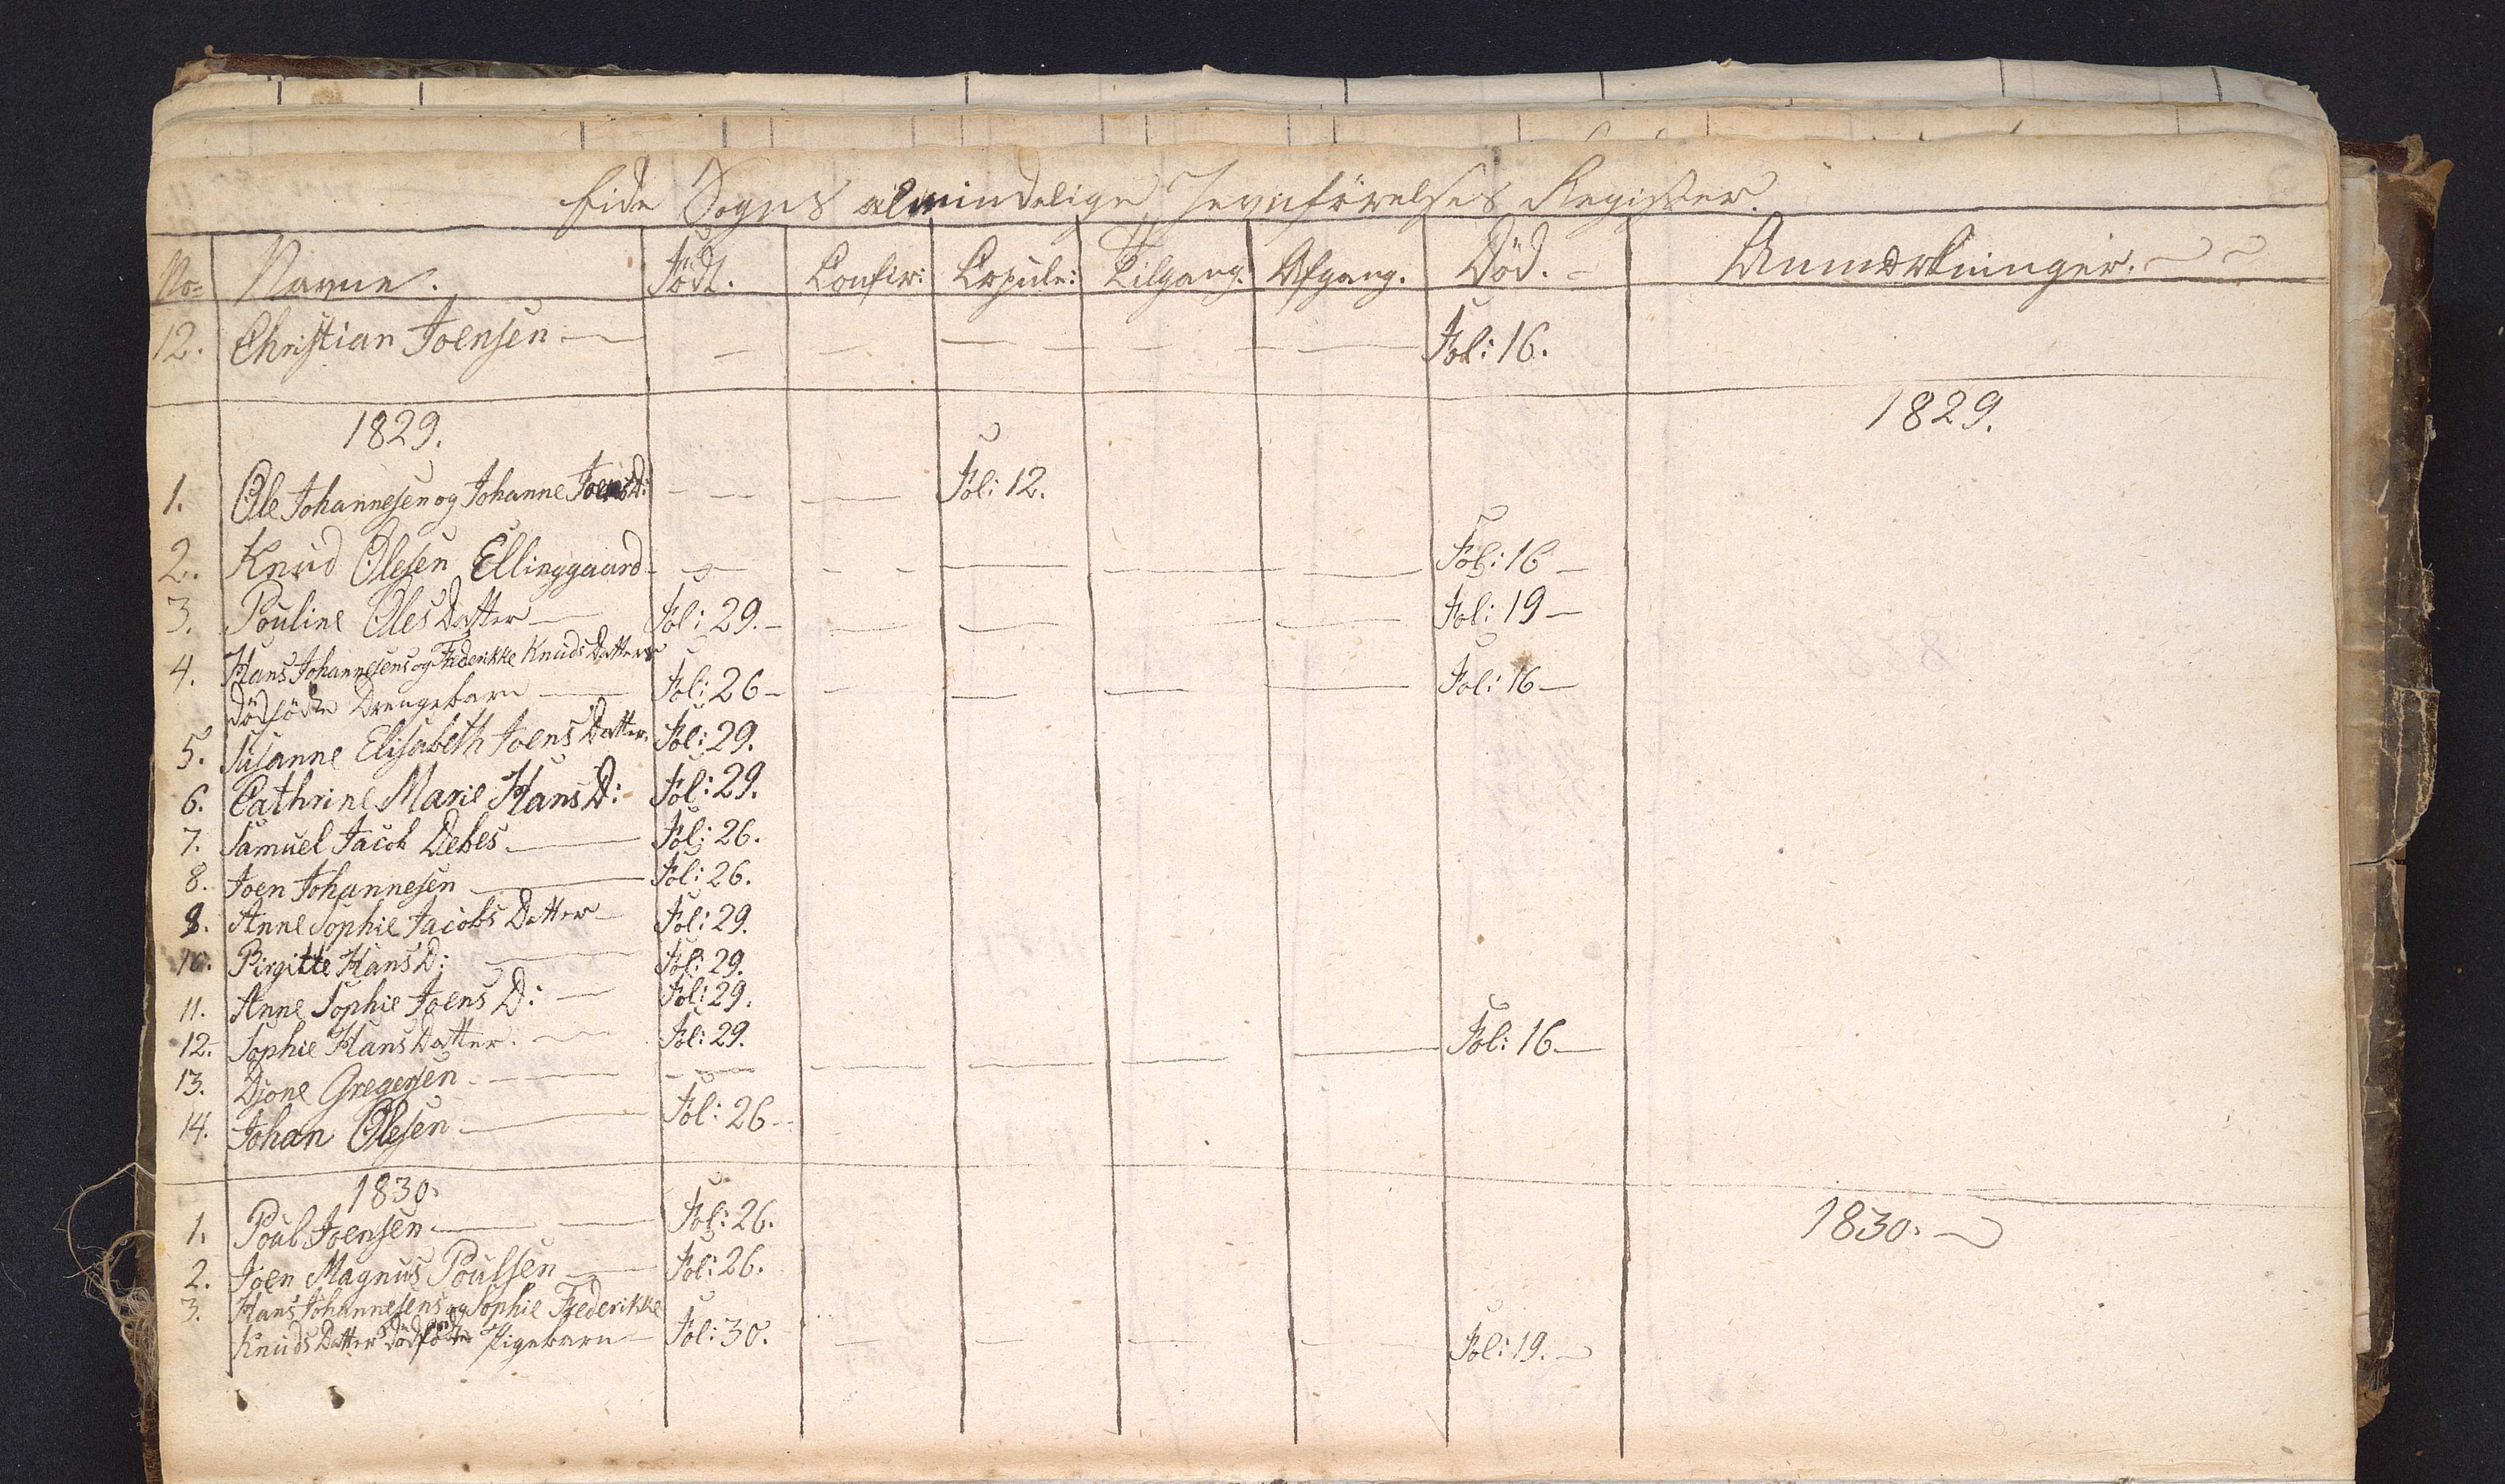 Eide Sogns almindelige Jevnförelses Register.
No= Navne. Födt. Confir: Copule: Tilgang. Afgang. Död. - Anmærkninger.
12. Christian Joensen — Fol: 16.
1829. 1829.
1. Ole Johannesen og Johanne JoensD: Fol: 12.
2. Knud Olesen Ellinggaard - Fol: 16 -
3. Pouline OlesDatter — Fol: 29. - Fol: 19 -
4. Hans Johannesens og Frederikke KnudsDatters
dödfödte Drengebarn — Fol: 26 - Fol: 16 -
5. Susanne Elisabeth Joens Datter. Fol: 29.
6. Cathrine Marie Hans D: Fol: 29.
7. Samuel Jacob Debes. — Fol: 26.
8. Joen Johannesen — Fol: 26.
9. Anne Sophie Jacobs Datter — Fol: 29.
10. Birgitte Hans D: — Fol: 29.
11. Anne Sophie Joens D: — Fol: 29.
12. Sophie HansDatter. — Fol: 29.
13. Djone Gregersen. — Fol: 16. —
14. Johan Olesen — Fol: 26 -
1830.
1. Poul Joensen — Fol: 26. 1830. —
2. Joen Magnus Poulsen — Fol: 26.
3. Hans Johannesens og Sophie Frederikke
Knuds Datters dödfödte Pigebarn — Fol: 30. Fol: 19. —